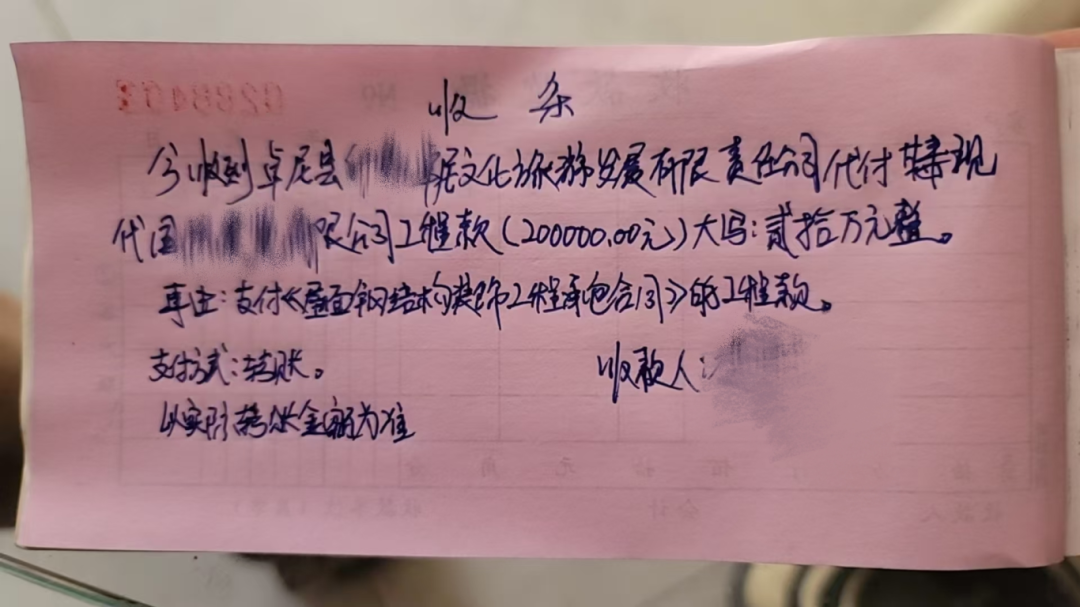 收条
今收到卓尼县 文化旅游发展有限责任公司代付 现
代国 限公司工程款（200000.00元）大写：贰拾万元整。
事由：支付《屋面钢结构装饰工程承包合同》的工程款。
支付方式：转账。
收款人：
以实际转账金额为准
0288403
№
收款收据
元
角
会计
收款人